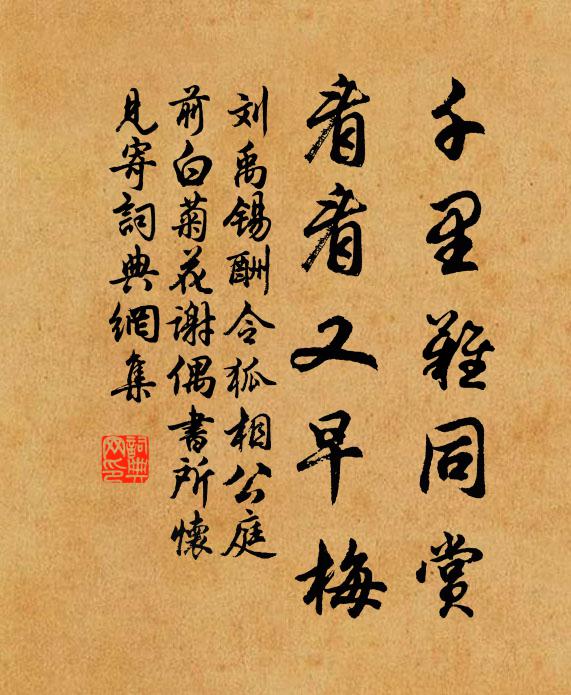 千里難同賞
看看又早梅
刘禹锡酬令狐相公庭
前白菊花谢偶書所懷
見寄詞典網集
詞典网印